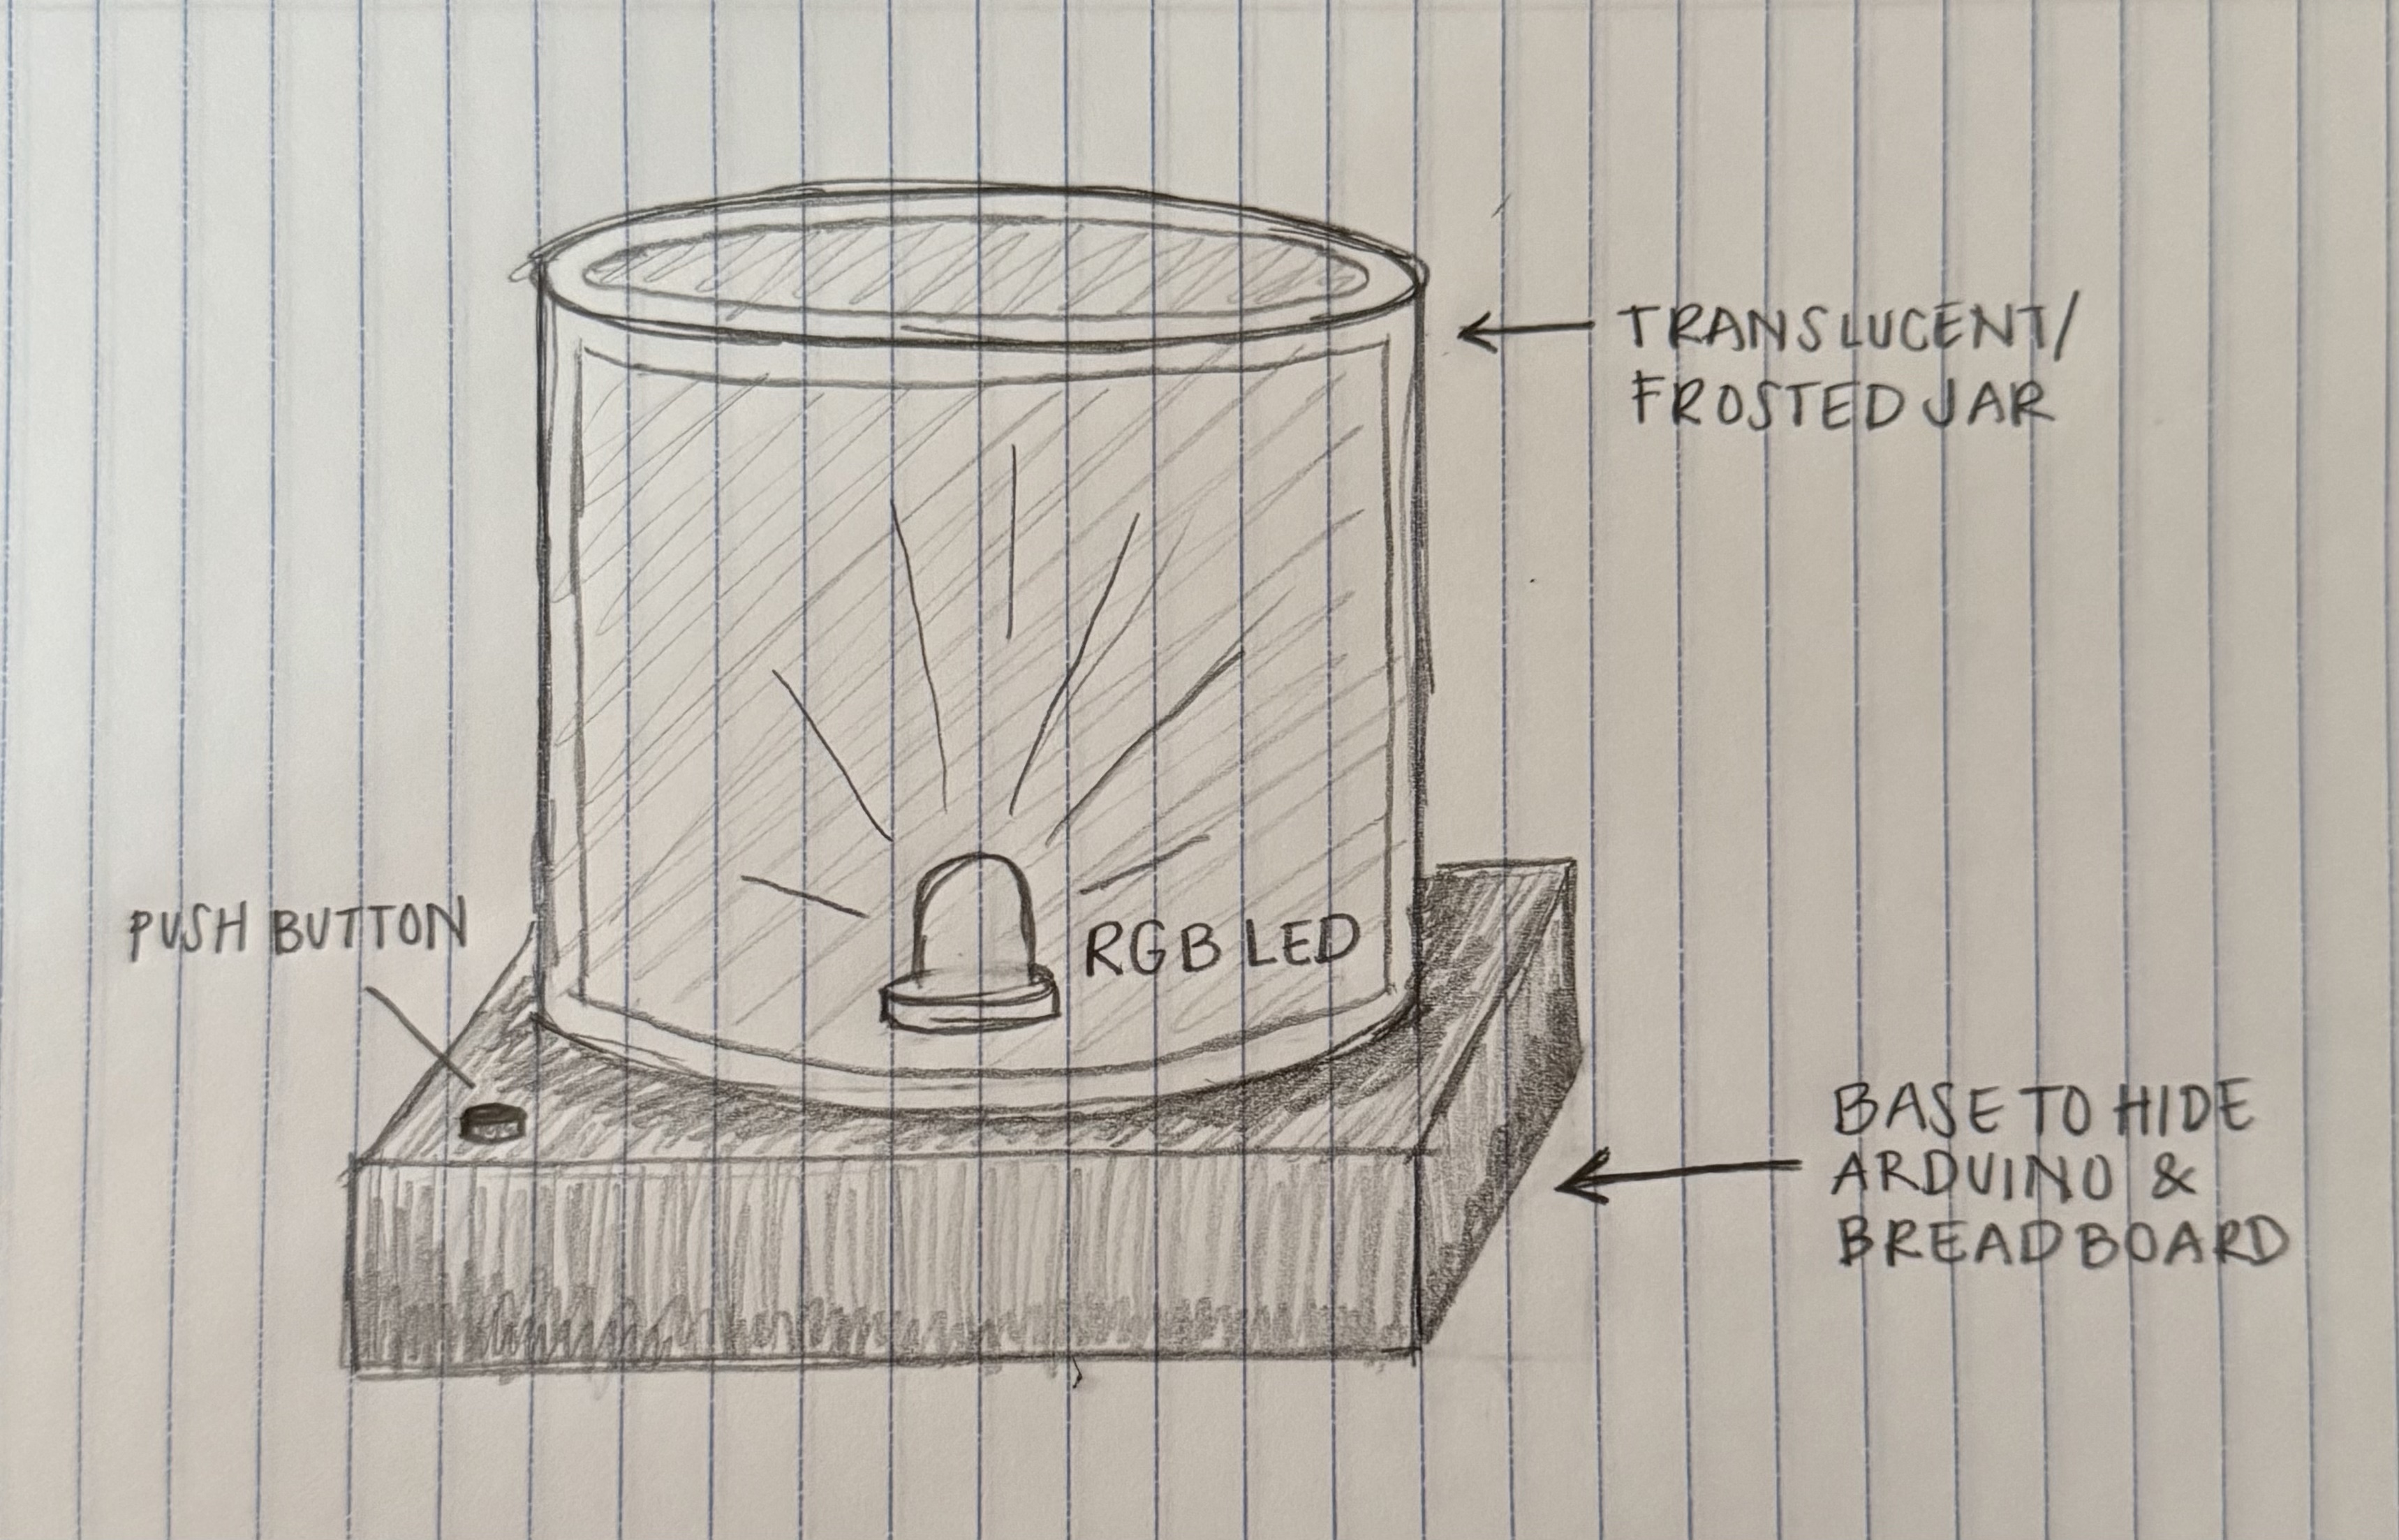 TRANSLUCENT/
FROSTED JAR
PUSH BUTTON
RGB LED
BASE TO HIDE
ARDUINO &
BREADBOARD